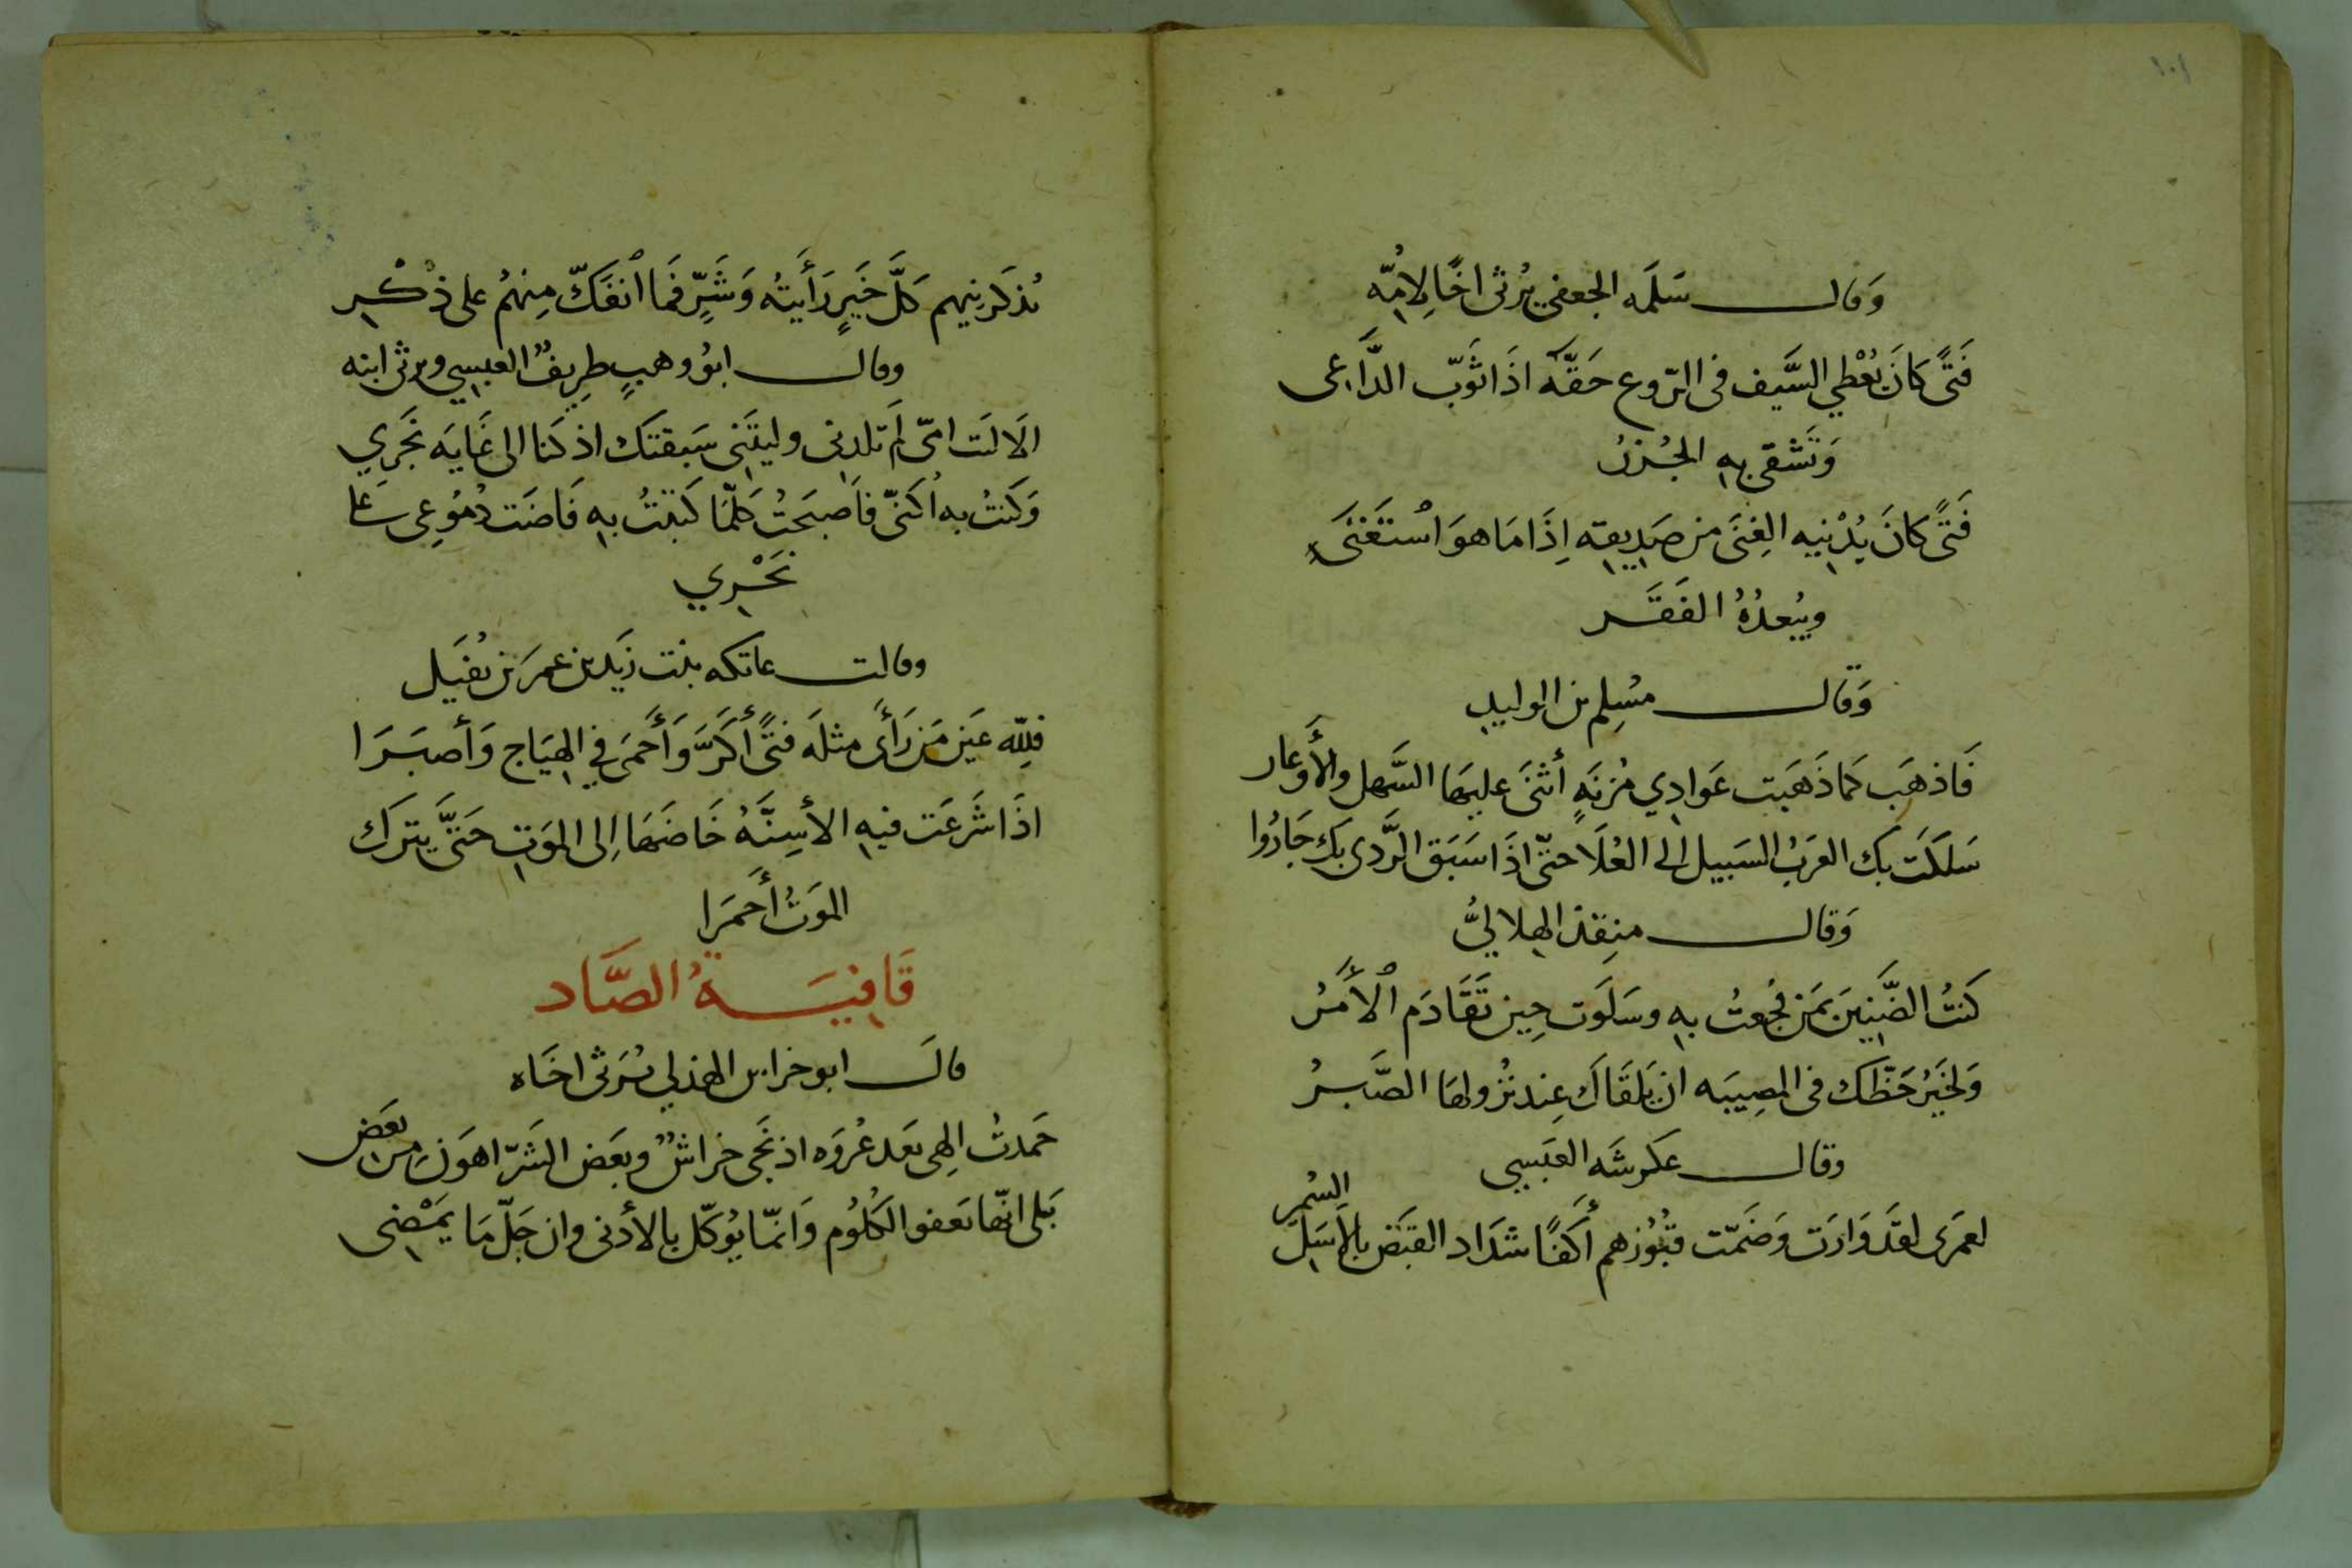 ١٠١
وَقال سَلمَه الجعفي يُرثى اخًا لِامُّه
فَتًى كانَ يُعْطي السَّيف فى الرّوع حَقّه اذَا ثَوّب الدَّاعى
وَتَشقى به الجُزرُ
فَتًى كانَ يُدْنيه الغِنَى من صَدِيقه اِذَا مَا هوَ اسْتَغنَى
ويُبعدُهُ الفَقَر
وَقال مسُلِم بن الوليد
فَاذهَب كمَا ذَهَبَت عَوادِي مُزنَةٍ أثنَى عليهَا السَّهل والأَوعَار
سَلكَت بك العَرَبُ السَبيل الى العُلَا حتّى اذَا سَبَق الرَّدى بكَ جَارُوا
وَقال منِقذ الهلاليُّ
كنتُ الضَّنِينَ بمَن فُجعتُ به وسَلَوَت حِين تَقَادَم الأَمَرُ
وَلخيَرُ حَظّك فى المصِيبَه ان يَلقَاكَ عِند نُزُولهَا الصَّبرُ
وقال عكرشَه العَبَسِي
لعمَرى لقَد وَارَت وَضَمّت قبُوُرُهم أَكفًا شدَاد القبَض بالاَسَل
السُمرِ
يُذكرنِيهم كلَّ خَيرٍ رَأَيتُه وَشَرٍّ فمَا انفَكّ مِنهمُ على ذكْرِ
وقال ابوُ وهبٍ طِريفٌ العبسِي ويرثى ابنه
الَا لَيت امّى لَم تلدنى وليتَنى سَبَقتَك اذ كنا الى غَايَه نَجَرِي
وَكنتُ به اكنّى فاَصبَحتُ كلّمَا كنيتُ به فَاضَت دُموُعِى عَلى
نَحْرِي
وقالت عاتكه بنت زيَد بن عمرَ بن نفُيَل
فلِلّه عَينَ مَن رَأَى مثلَه فتًى أَكَرَّ وَأَحمَى في الهيَاج وَأصبَرَا
اذَا شَرعَت فيهِ الأسِنَّهُ خَاضَهَا اِلى الموَتِ حَتىَّ يترَك
الموَتَ أَحمَرَا
قَافِيَةُ الصَّاد
قالَ ابو خراش الهذلي يُرثى اخَاه
حَمدتُ اِلهِى بَعَد عُروَه اذ نَجَى خراشٌ وبَعَض الشَرّ اهوَن مِن بعَض
بَلى انّها تعَفو الكلُوُم وَانمّا يوُكّل بالأدنى وان جَلّ مَا يمَضى